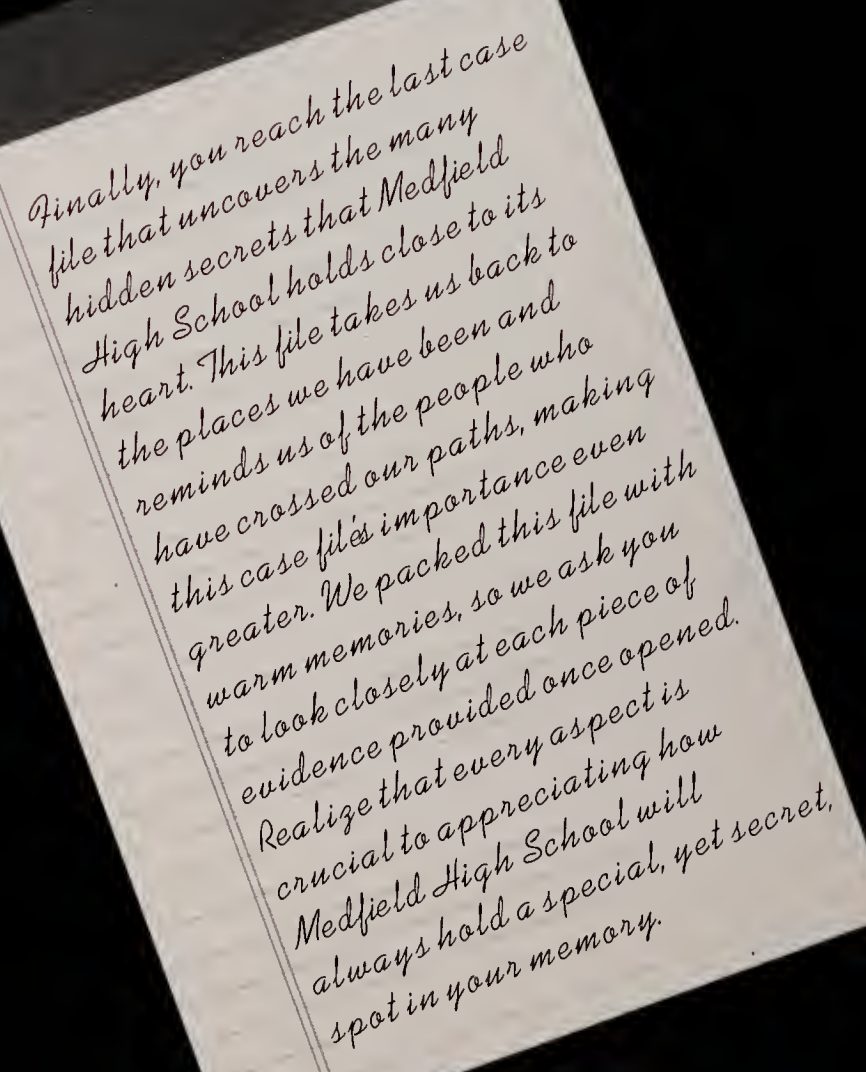 Finally, you reach the last case
file that uncovers the many
hidden secrets that Medfield
High School holds close to its
heart. This file takes us back to
the places we have been and
reminds us of the people who
have crossed our paths, making
this case file's importance even
greater. We packed this file with
warm memories, so we ask you
to look closely at each piece of
evidence provided once opened.
Realize that every aspect is
crucial to appreciating how
Medfield High School will
always hold a special, yet secret,
spot in your memory.